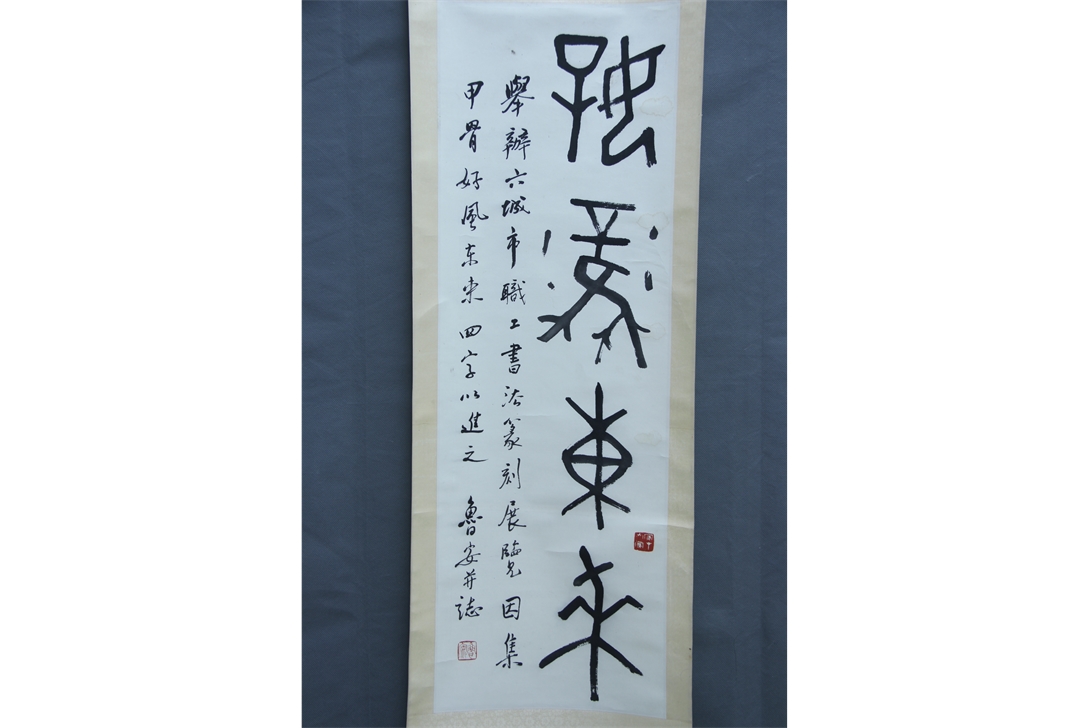 好風東来
舉辦六城市職工書法篆刻展覽因集
甲骨好風东来四字以進之 魯安并誌